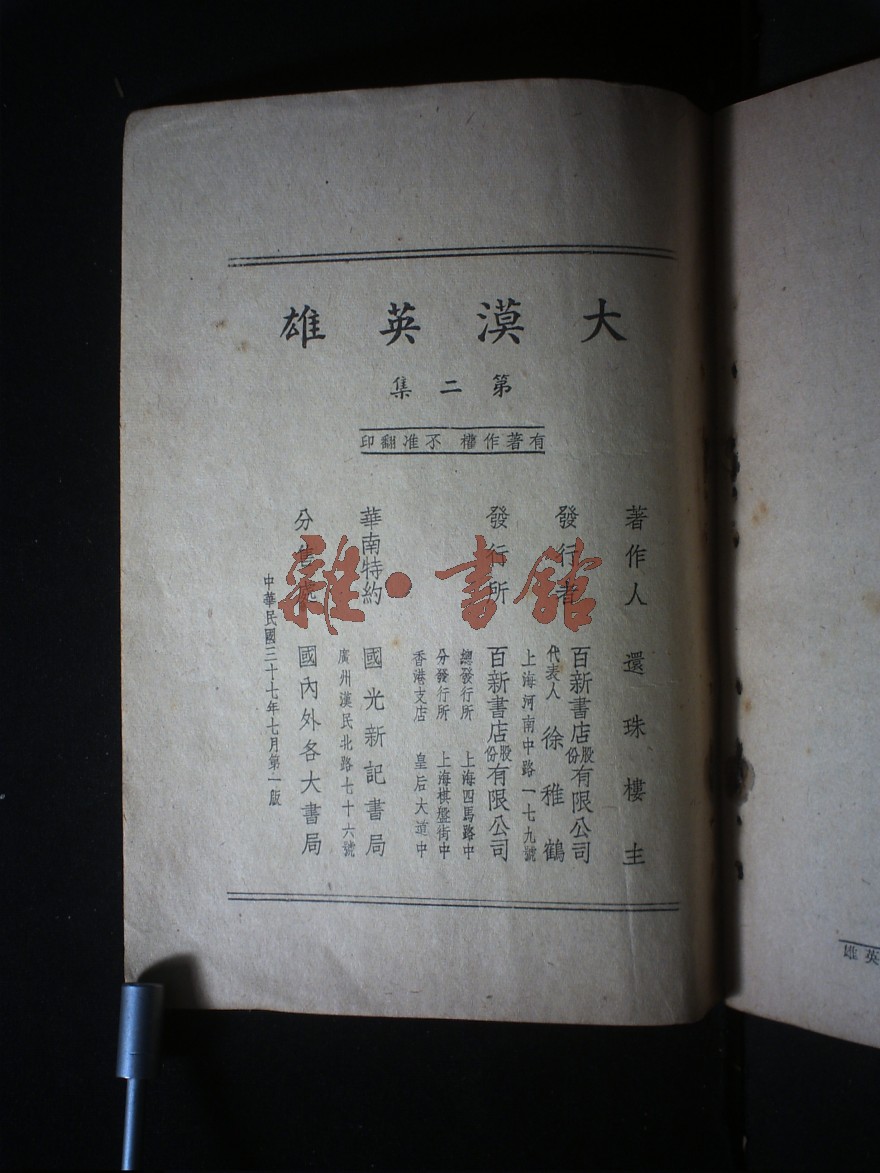 大漠英雄
第二集
有著作權 不准翻印
著作人 還珠樓主
發行者 百新書店股份有限公司
代表人 徐稚鶴
上海河南中路一七九號
發行所 百新書店股份有限公司
總發行所 上海四馬路中
分發行所 上海棋盤街中
香港支店 皇后大道中
華南特約 國光新記書局
廣州漢民北路七十六號
分售處 國內外各大書局
中華民國三十七年七月第一版
雜·書館
英雄